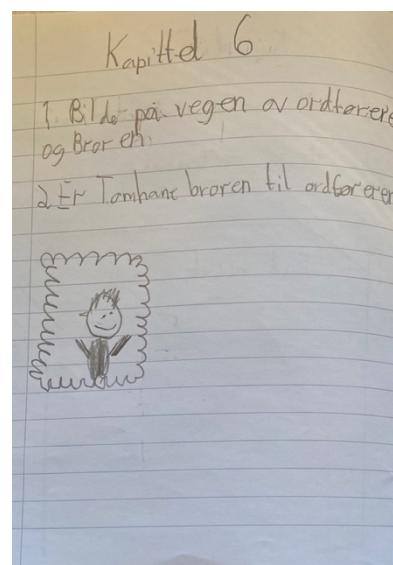 Kapittel 6
1. Bilde på vegen av ordførere
og Broren.
2 Er Tamhane broren til ordføreren